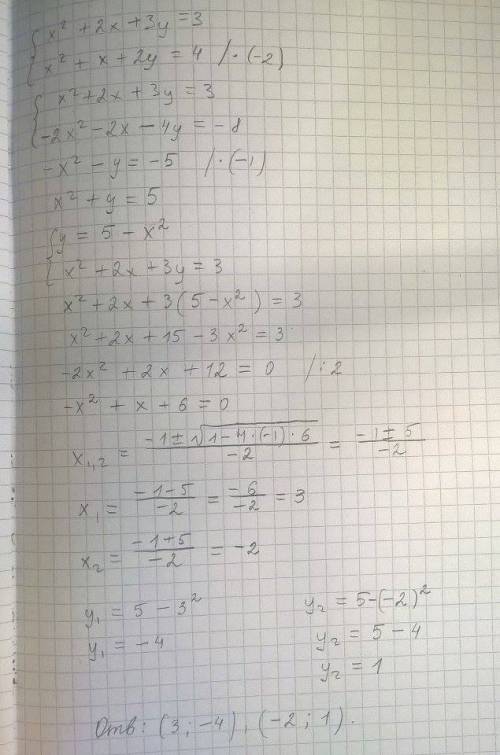 x² + 2x + 3y = 3
x² + x + 2y = 4 / · (-2)
x² + 2x + 3y = 3
-2x² - 2x - 4y = -8
-x² - y = -5 / · (-1)
x² + y = 5
y = 5 - x²
x² + 2x + 3y = 3
x² + 2x + 3(5 - x²) = 3
x² + 2x + 15 - 3x² = 3
-2x² + 2x + 12 = 0 / : 2
-x² + x + 6 = 0
x₁,₂ = (-1 ± √(1 - 4 · (-1) · 6)) / -2 = (-1 ± 5) / -2
x₁ = (-1 - 5) / -2 = -6 / -2 = 3
x₂ = (-1 + 5) / -2 = -2
y₁ = 5 - 3²
y₁ = -4
y₂ = 5 - (-2)²
y₂ = 5 - 4
y₂ = 1
Отв: (3; -4), (-2; 1).